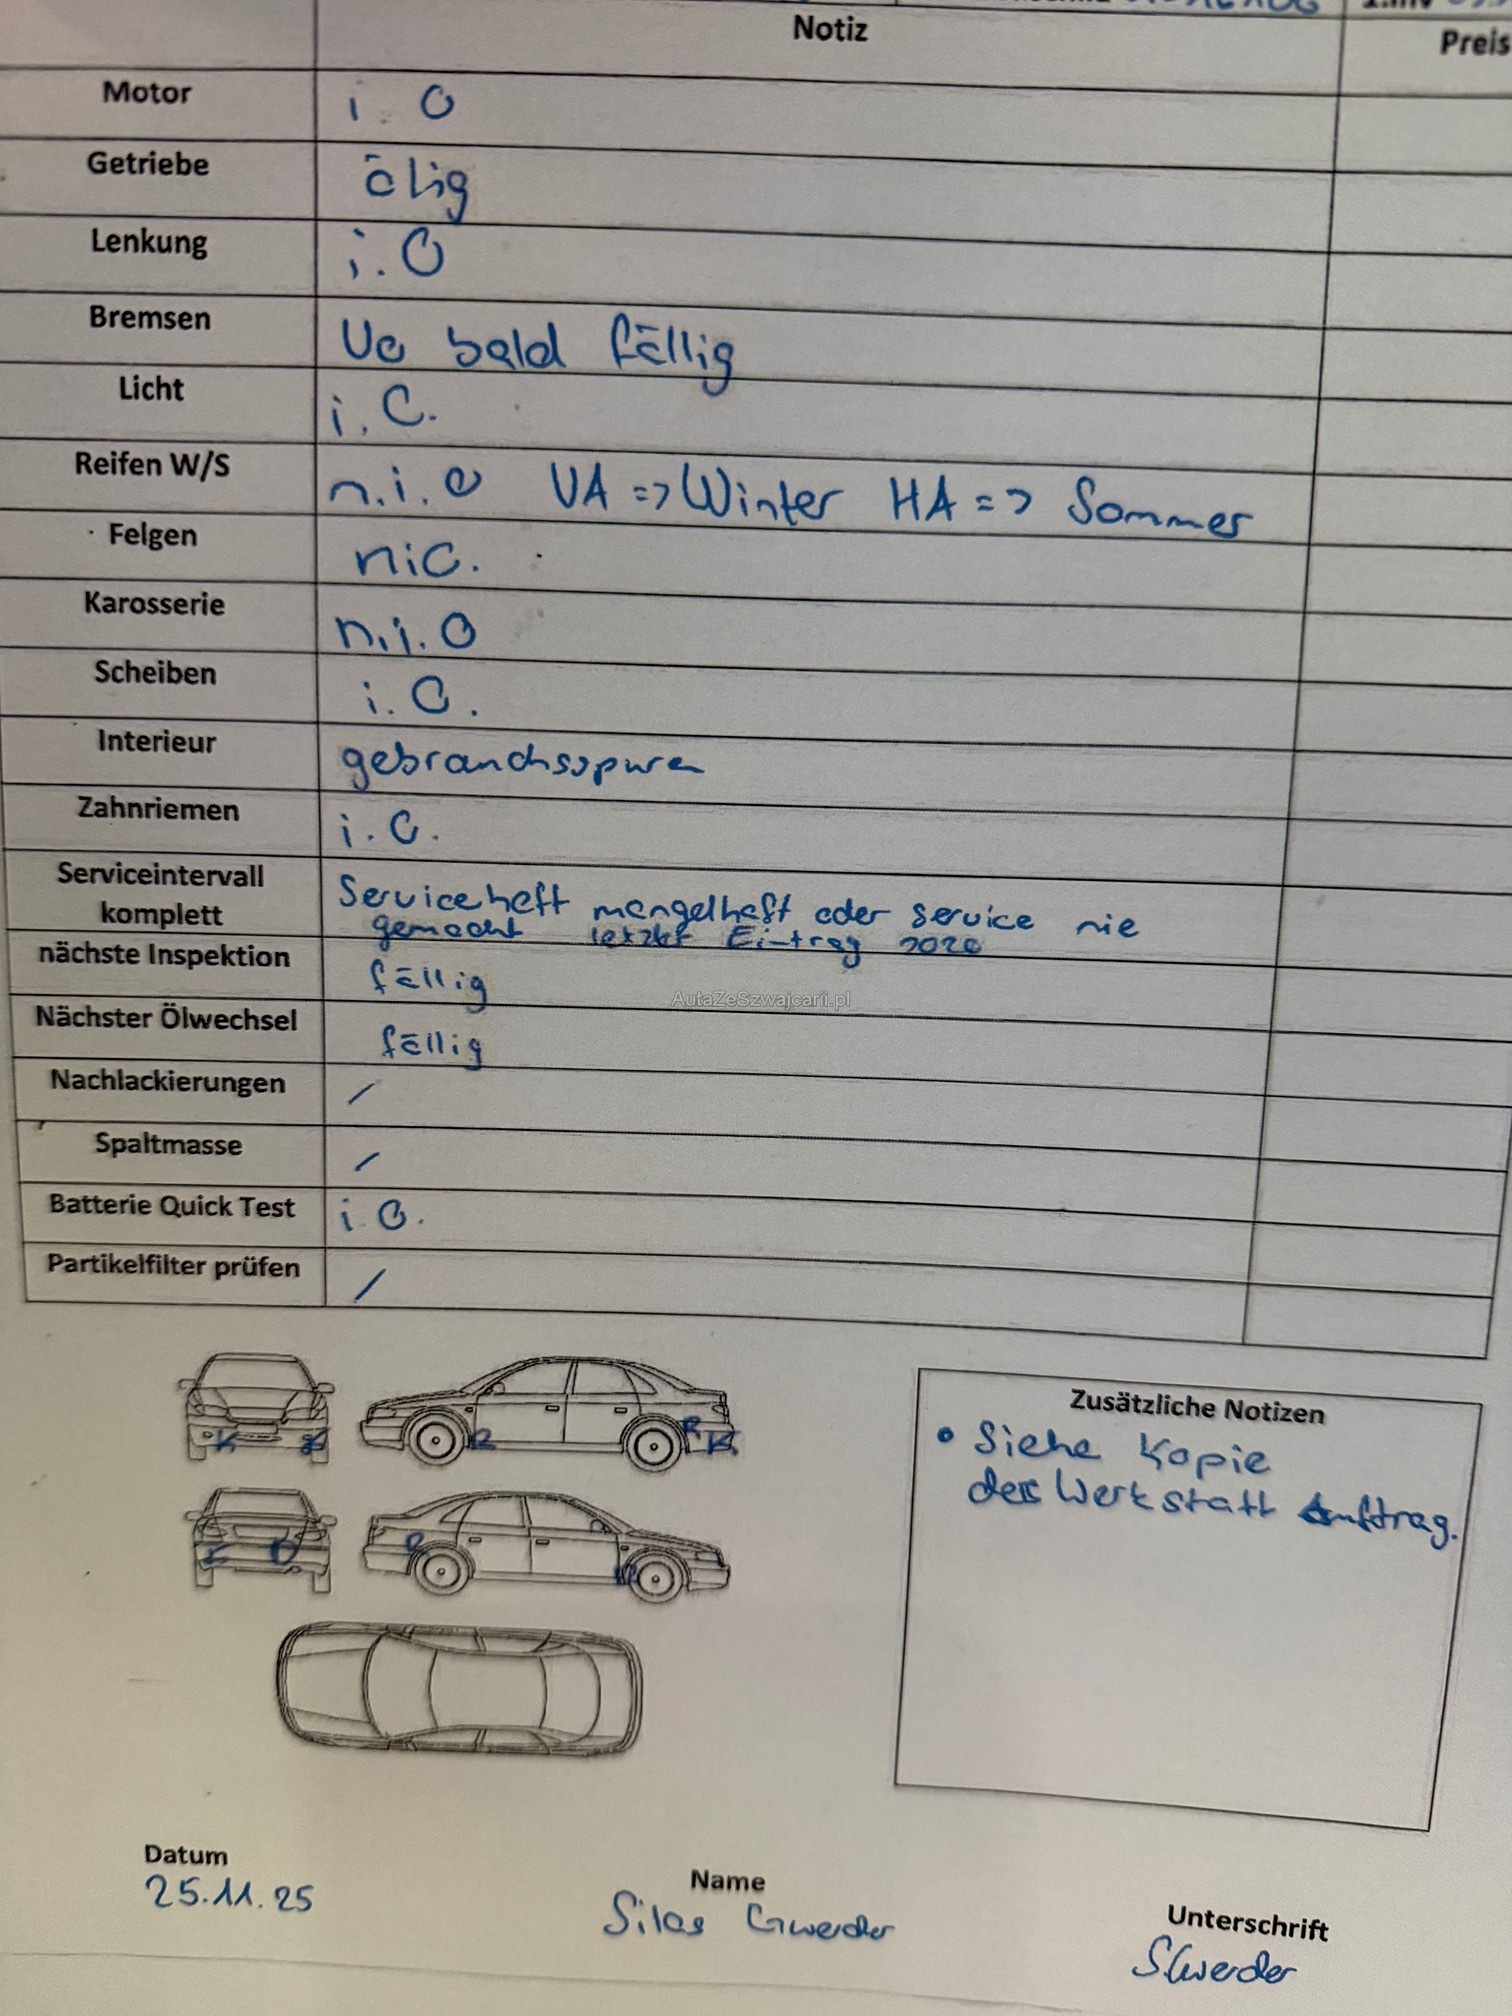 Notiz
Preis
Motor i. O
Getriebe ölig
Lenkung i. O
Bremsen bald fällig
Licht i. O.
Reifen W/S n. i. O VA => Winter HA => Sommer
Felgen niO.
Karosserie n. i. O
Scheiben i. O.
Interieur gebrauchsspuren
Zahnriemen i. O.
Serviceintervall komplett Serviceheft mangelhaft oder service nie
gemacht letzter Eintrag 2020
nächste Inspektion fällig
Nächster Ölwechsel fällig
Nachlackierungen /
Spaltmasse /
Batterie Quick Test i. O.
Partikelfilter prüfen /
AutaZeSzwajcarii.pl
Zusätzliche Notizen
• Siehe Kopie
des Werkstatt Auftrag.
Datum
25.11.25
Name
Silas Gwerder
Unterschrift
SGwerder